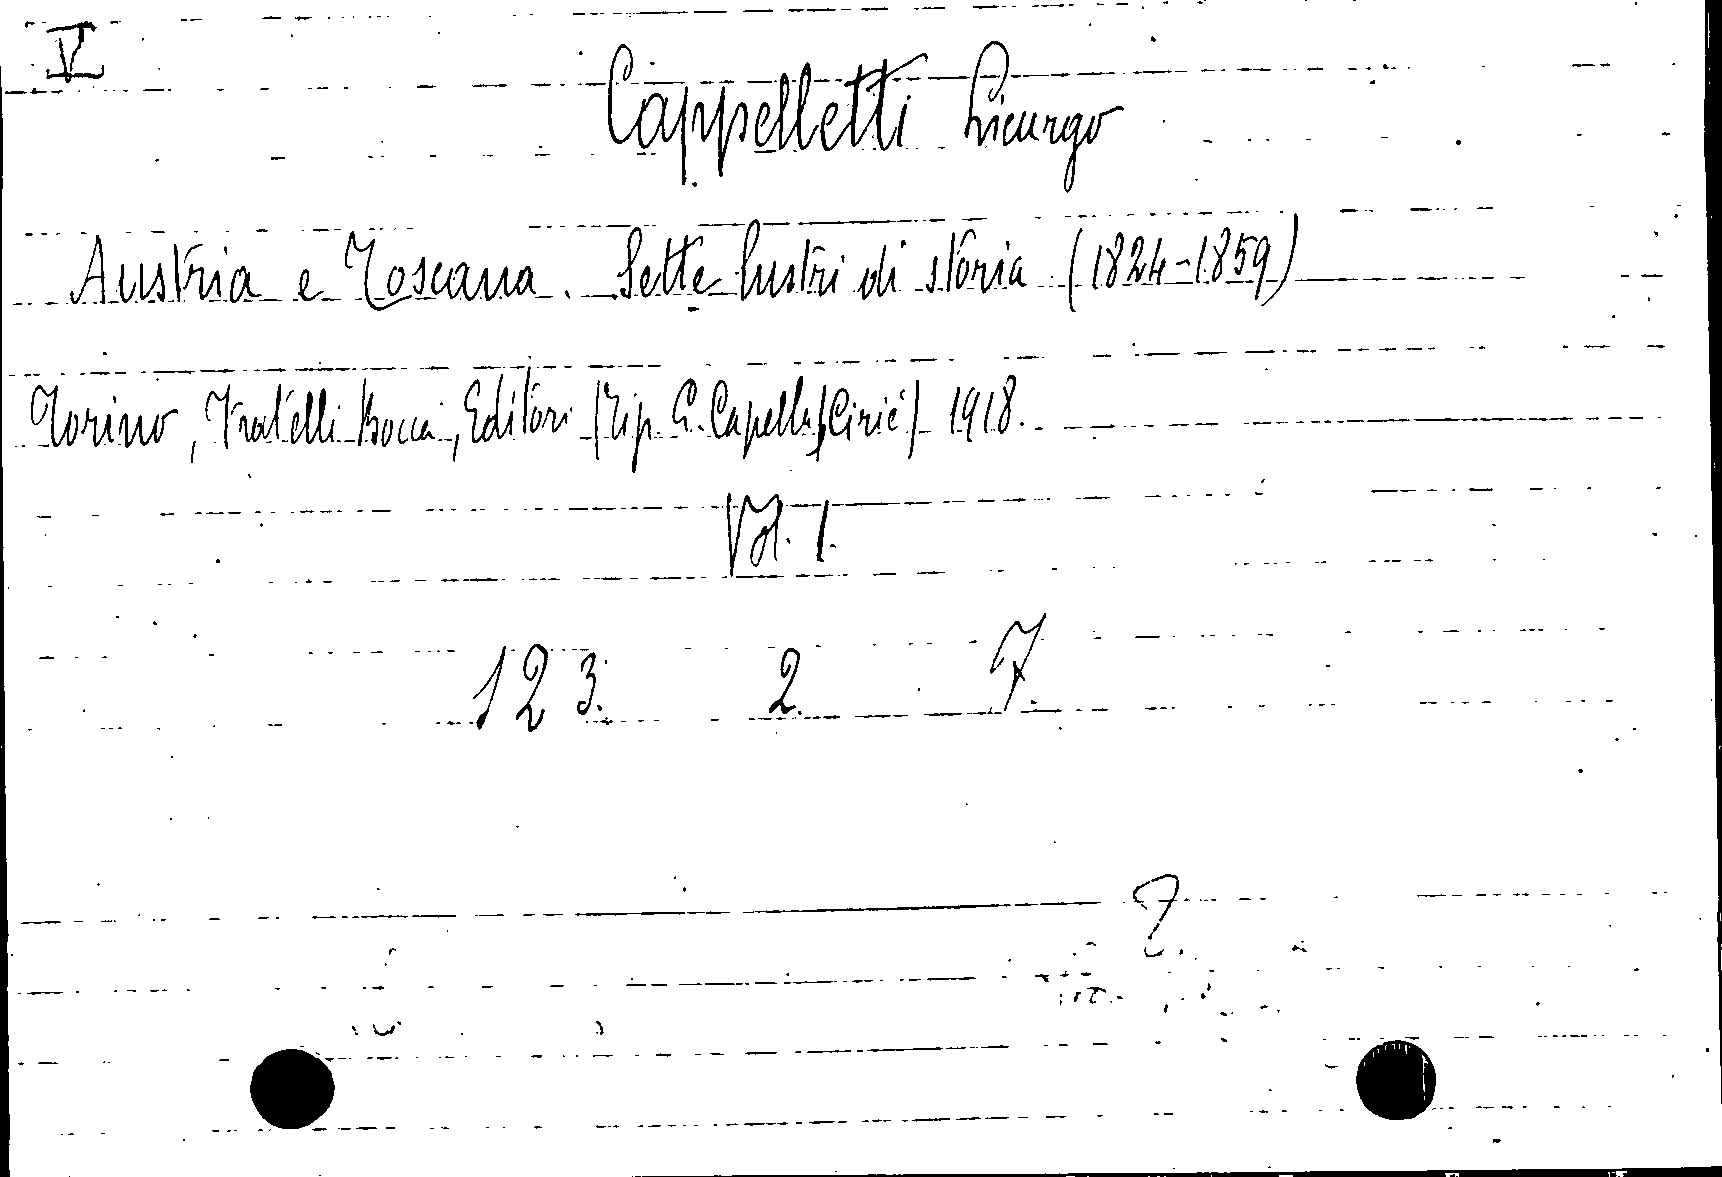 V
Cappelletti Licurgo
Austria e Toscana. Sette lustri di storia (1824-1859)
Torino, Fratelli Bocca, Editori (Tip. G. Capella, Ciriè) 1918.
Vol. 1.
123. 2. 7.